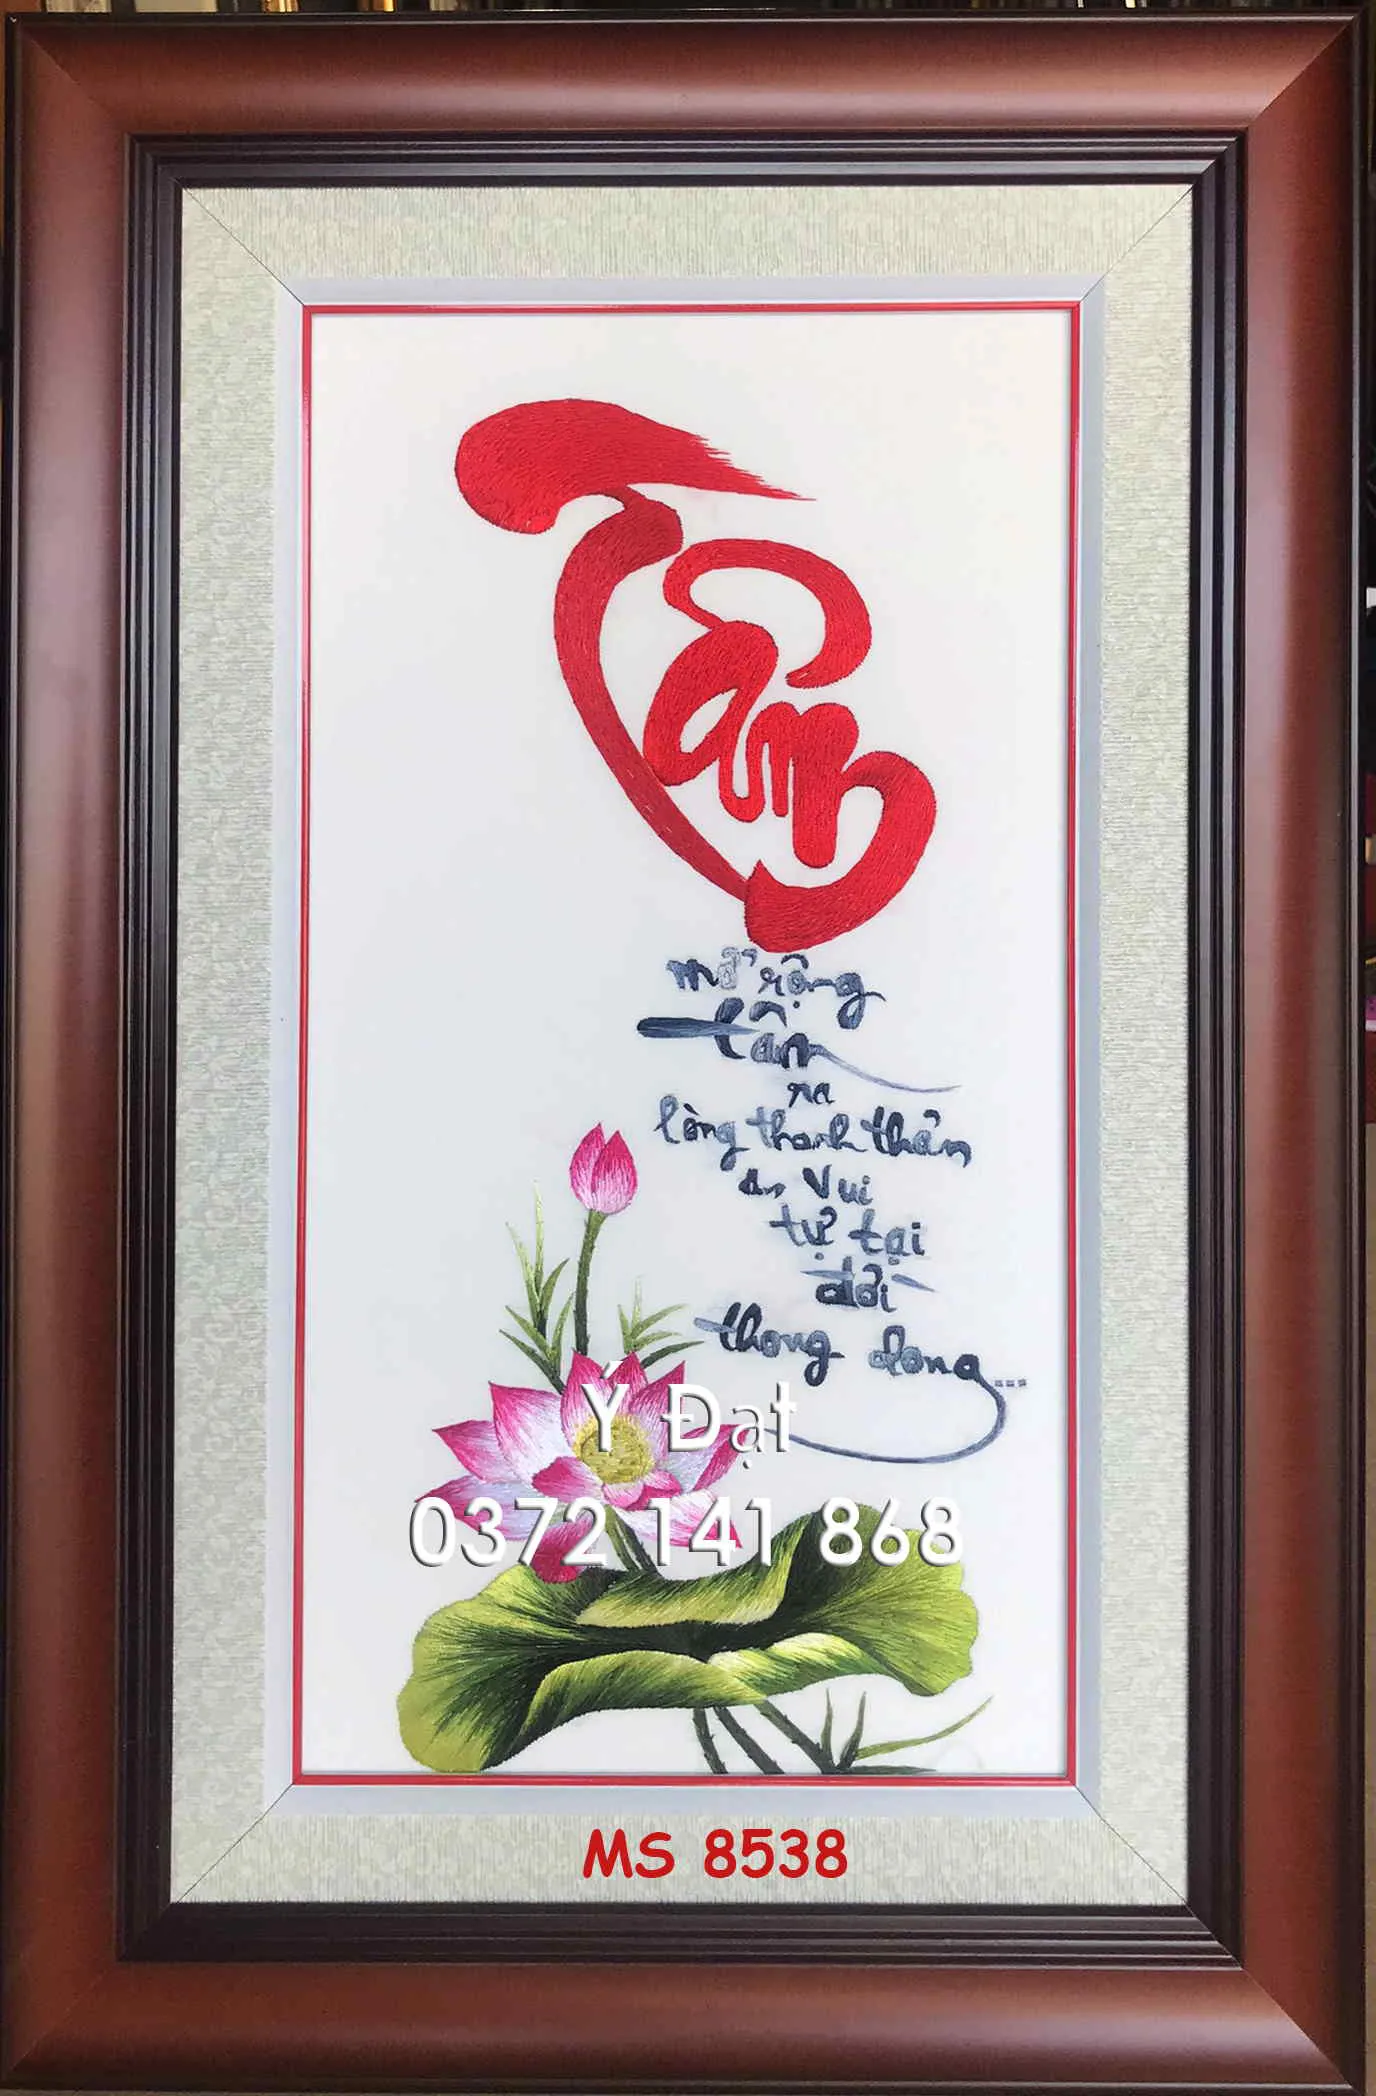 Tâm
mở rộng
tâm
ra
lòng thanh thản
an vui
tự tại
đời
thong dong...
Ý Đạt
0372 141 868
MS 8538